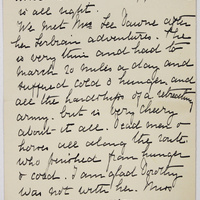 is all right.
We met Mrs Lee Dawne after
her Serbian adventures. She
is very thin and had to
march 20 miles a day and
suffered cold & hunger and
all the hardships of a retreating
army. but is very cheery
about it all. Dead men &
horses all along the route
who perished from hunger
& cold. I am glad Dorothy
was not with her. Miss